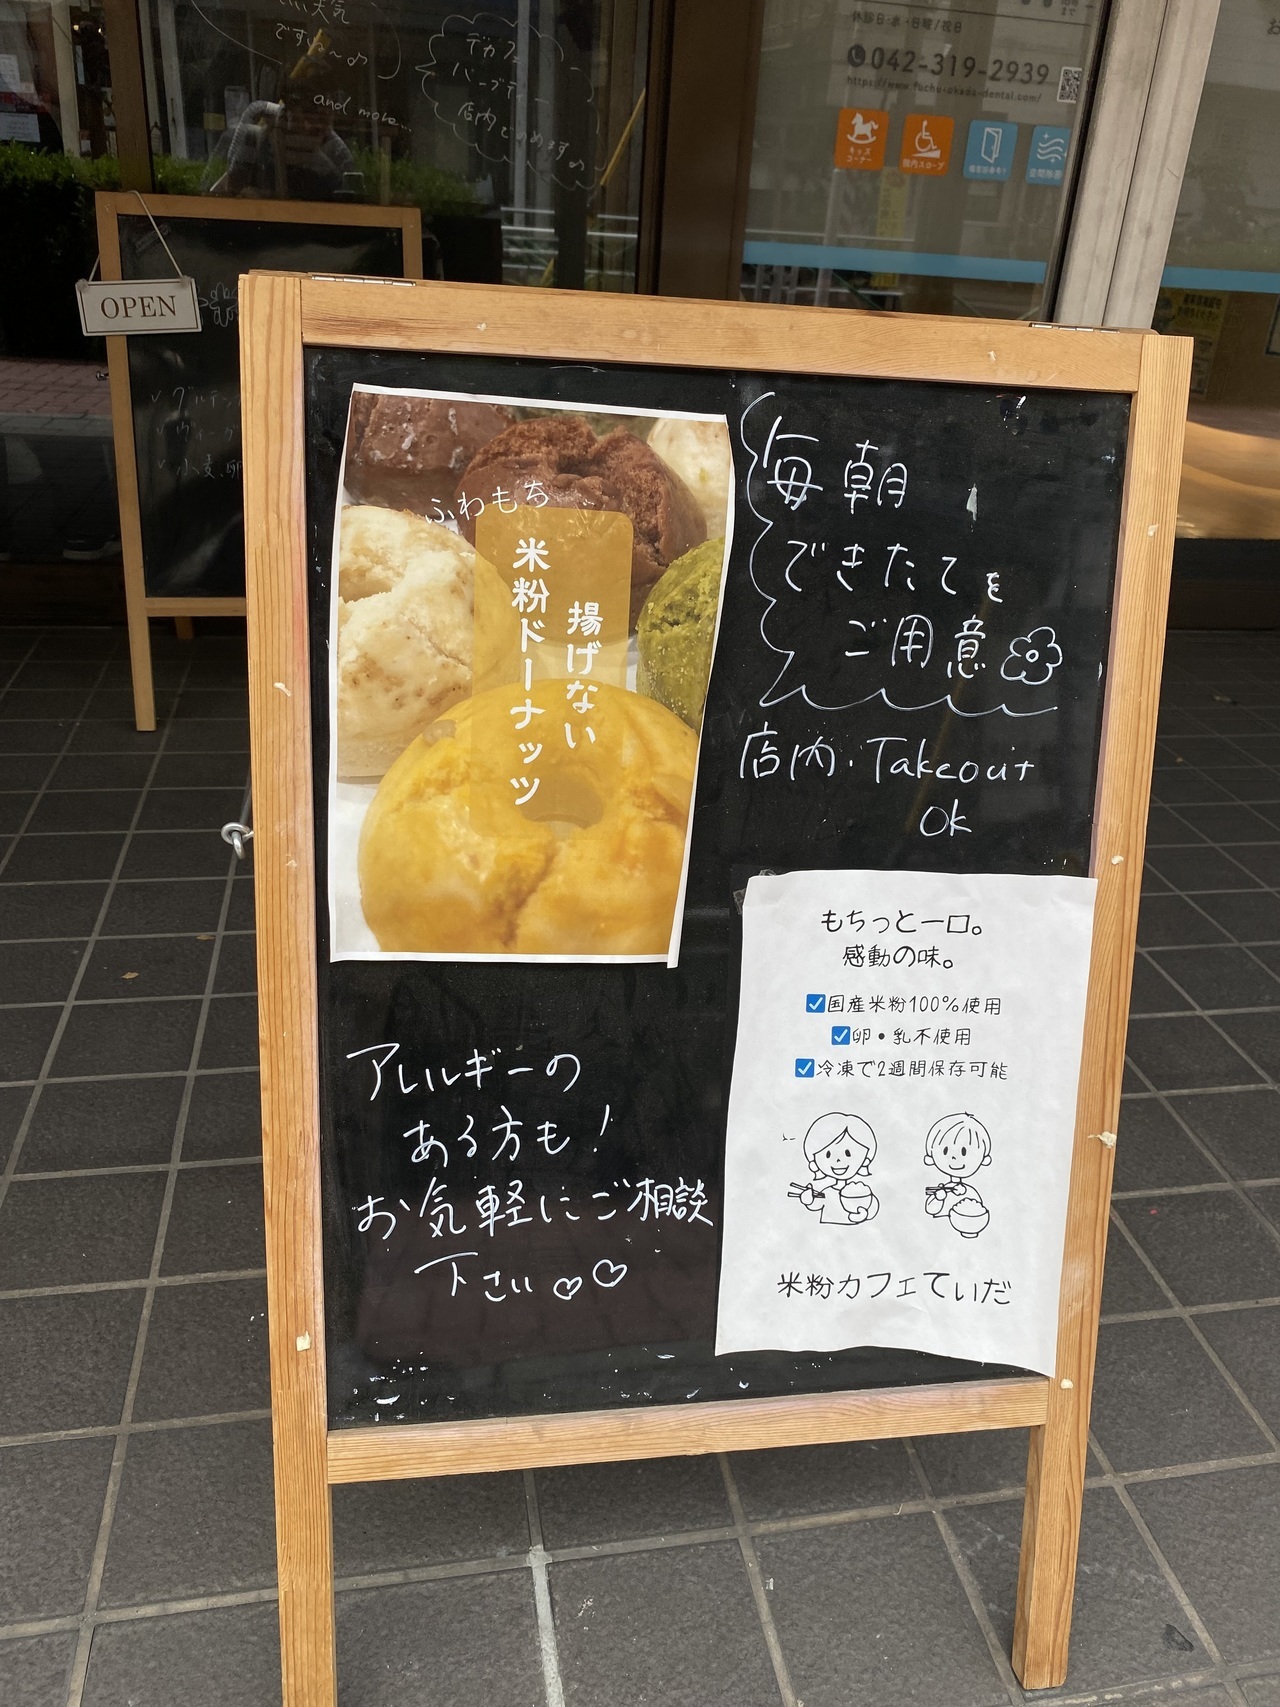 いい天気
ですね〜♪
and more...
デカフェ
ハーブティー
店内でのめます♪
休診日:水・日曜/祝日
042-319-2939
https://www.fuchu-okada-dental.com/
キッズ
コーナー
院内スロープ
OPEN
グルテン
小麦、卵
ふわもち
揚げない
米粉ドーナッツ
毎朝
できたてを
ご用意
店内・Takeout
OK
アレルギーの
ある方も!
お気軽にご相談
下さい
もちっと一口。
感動の味。
国産米粉100%使用
卵・乳不使用
冷凍で2週間保存可能
米粉カフェてぃだ